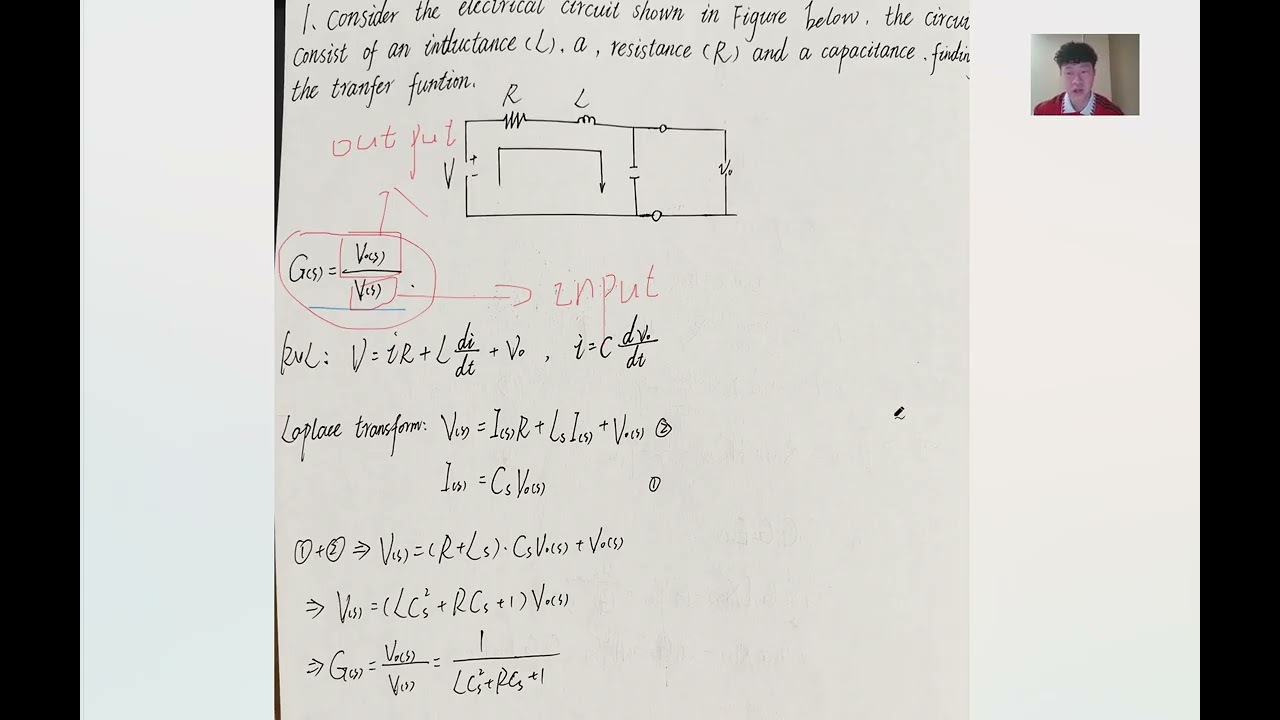 1. Consider the electrical circuit shown in Figure below, the circui
consist of an intluctance (L), a, resistance (R) and a capacitance. findin
the tranfer funtion.
R L
output
V + - V₀
G(s) = V₀(s) / V(s) .
input
KVL: V = iR + L di/dt + V₀ , i = C dV₀/dt
Laplace transform: V(s) = I(s)R + LsI(s) + V₀(s) ②
I(s) = CsV₀(s) ①
① + ② ⇒ V(s) = (R + Ls)·CsV₀(s) + V₀(s)
⇒ V(s) = (LCs² + RCs + 1) V₀(s)
⇒ G(s) = V₀(s) / V(s) = 1 / LCs² + RCs + 1